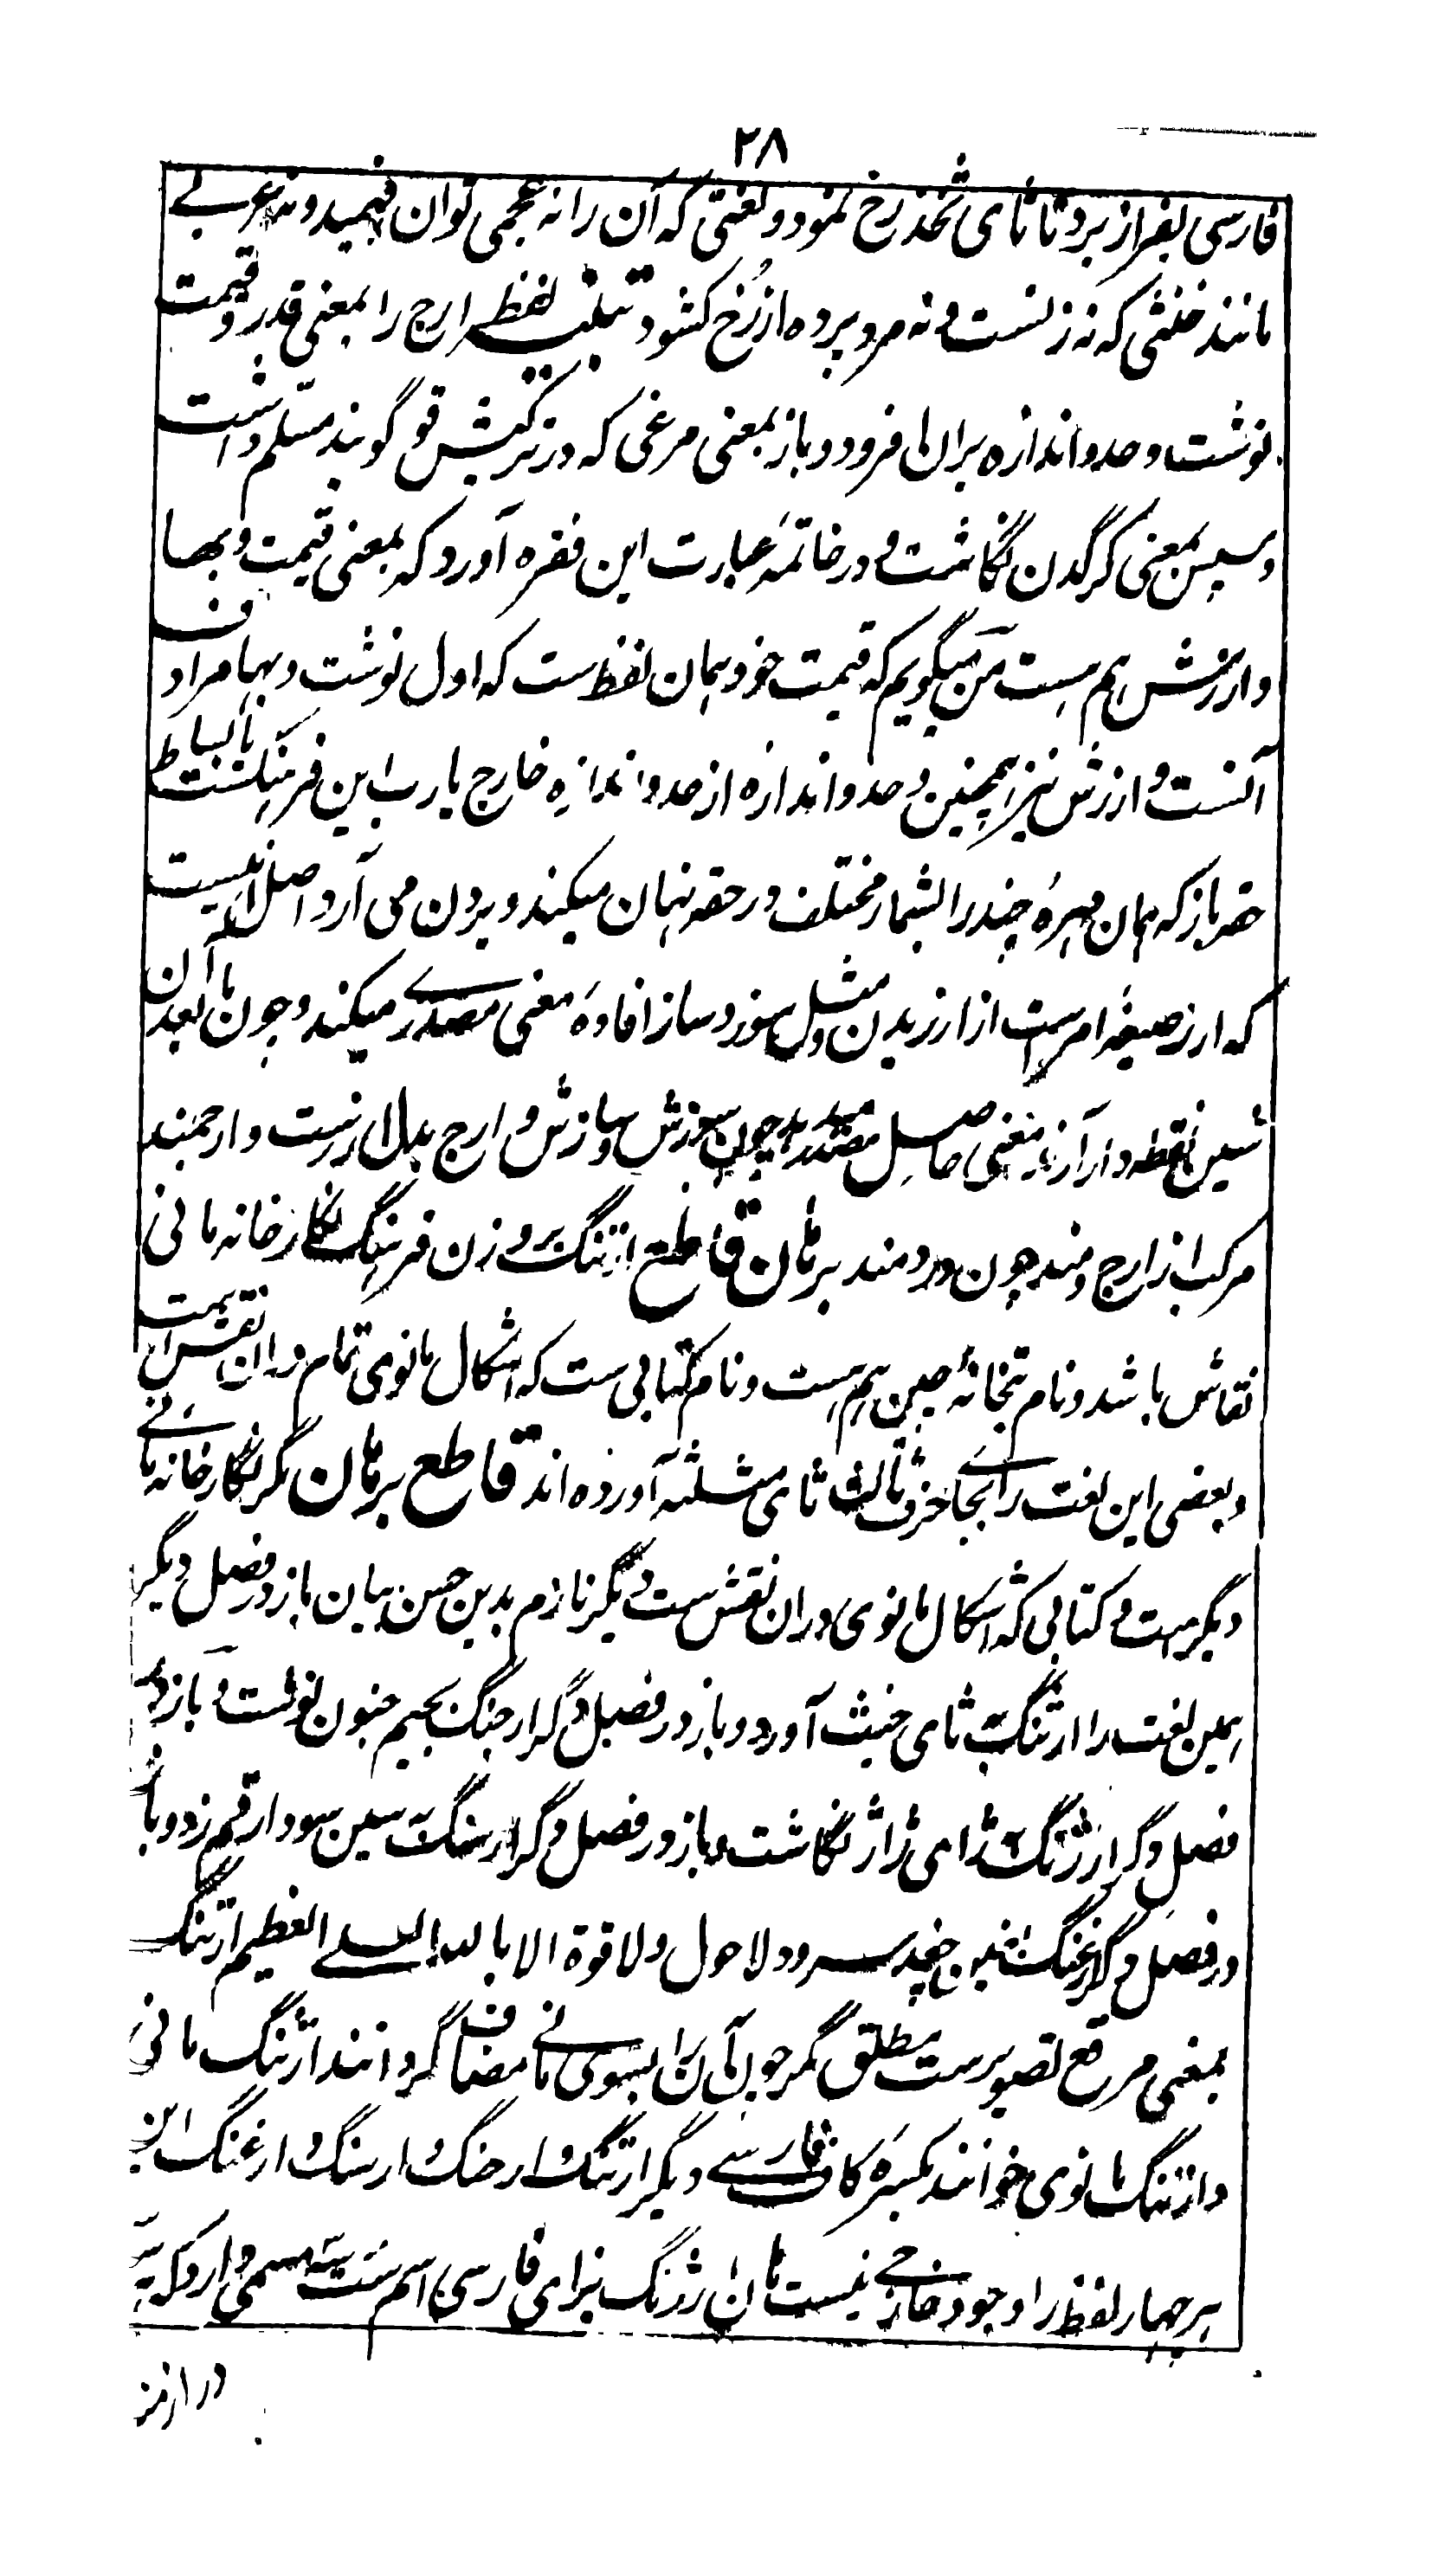 ۲۸
فارسی بفراز برد تا ثای ثخذ رخ نمود و لغتی که آن را نه عجمی توان فهمید و نه عربے
مانند خنثی که نه زنست و نه مرد پرده از رُخ کشود تنبیہ لفظ ارج را بمعنی قدر و قیمت
نوشت و حد و اندازه بران افزود و باز بمعنی مرغی که در ترکیش قو گویند مسلم داشت
و سپس بمعنی کرگدن نگاشت و در خاتمهٔ عبارت این فقره آورد که بمعنی قیمت و بها
و ارزش هم هست من میگویم که قیمت خود همان لفظ ست که اول نوشت و بها مرادف
آنست و ارزش نیز همچنین و حد و اندازه از حد و اندازه خارج یارب این فرهنگست یا بساط
حقه باز که همان مهرهٔ چند را بشمار مختلف در حقه نهان میکند و برون می آرد اصل اینست
که ارز صیغهٔ امرست از ارزیدن و مثل سوز و ساز افادهٔ معنی مصدرے میکند و چون با آن بعد
شین نقطه دار آرند معنی حاصل مصدر دهد چون سوزش و سازش و ارج بدل ارزست و ارجمند
مرکب از ارج و مند چون دردمند برهان قاطع ارتنگ بر وزن فرهنگ نگارخانه مانی
نقاش باشد و نام بتخانهٔ چین هم هست و نام کتابی ست که اشکال مانوی تمام در ان نقش است
و بعضی این لغت را بجاے حرف ثالث ثای مثلثه آورده اند قاطع برهان مگر نگارخانه مانے
دیگرست و کتابی که اشکال مانوی دران نقش ست دیگر نازم بدین حسن بیان باز در فصل دیگر
همین لغت را ارثنگ به ثای خبث آورد و باز در فصل دگر ارجنگ بجیم جنون نوشت و باز در
فصل دگر ارژنگ به زای ژاژ نگاشت و باز در فصل دگر ارسنگ به سین سودا رقم زد و باز
در فصل دگر ارغنگ بغین سرود لا حول ولا قوة الا بالله العلے العظیم ارتنگ
بمعنی مرقع تصویرست مطلق مگر چون آن را بسوی مانے مضاف گردانند ارتنگ مانی
و ارتنگ مانوی خوانند بکسرهٔ کاف فارسے دیگر ارثنگ و ارجنگ و ارسنگ و ارغنگ این
هر چهار لفظ را وجود خارجے نیست هان ارژنگ بزای فارسی اسم ست مسمی دارد که
در ازمنه